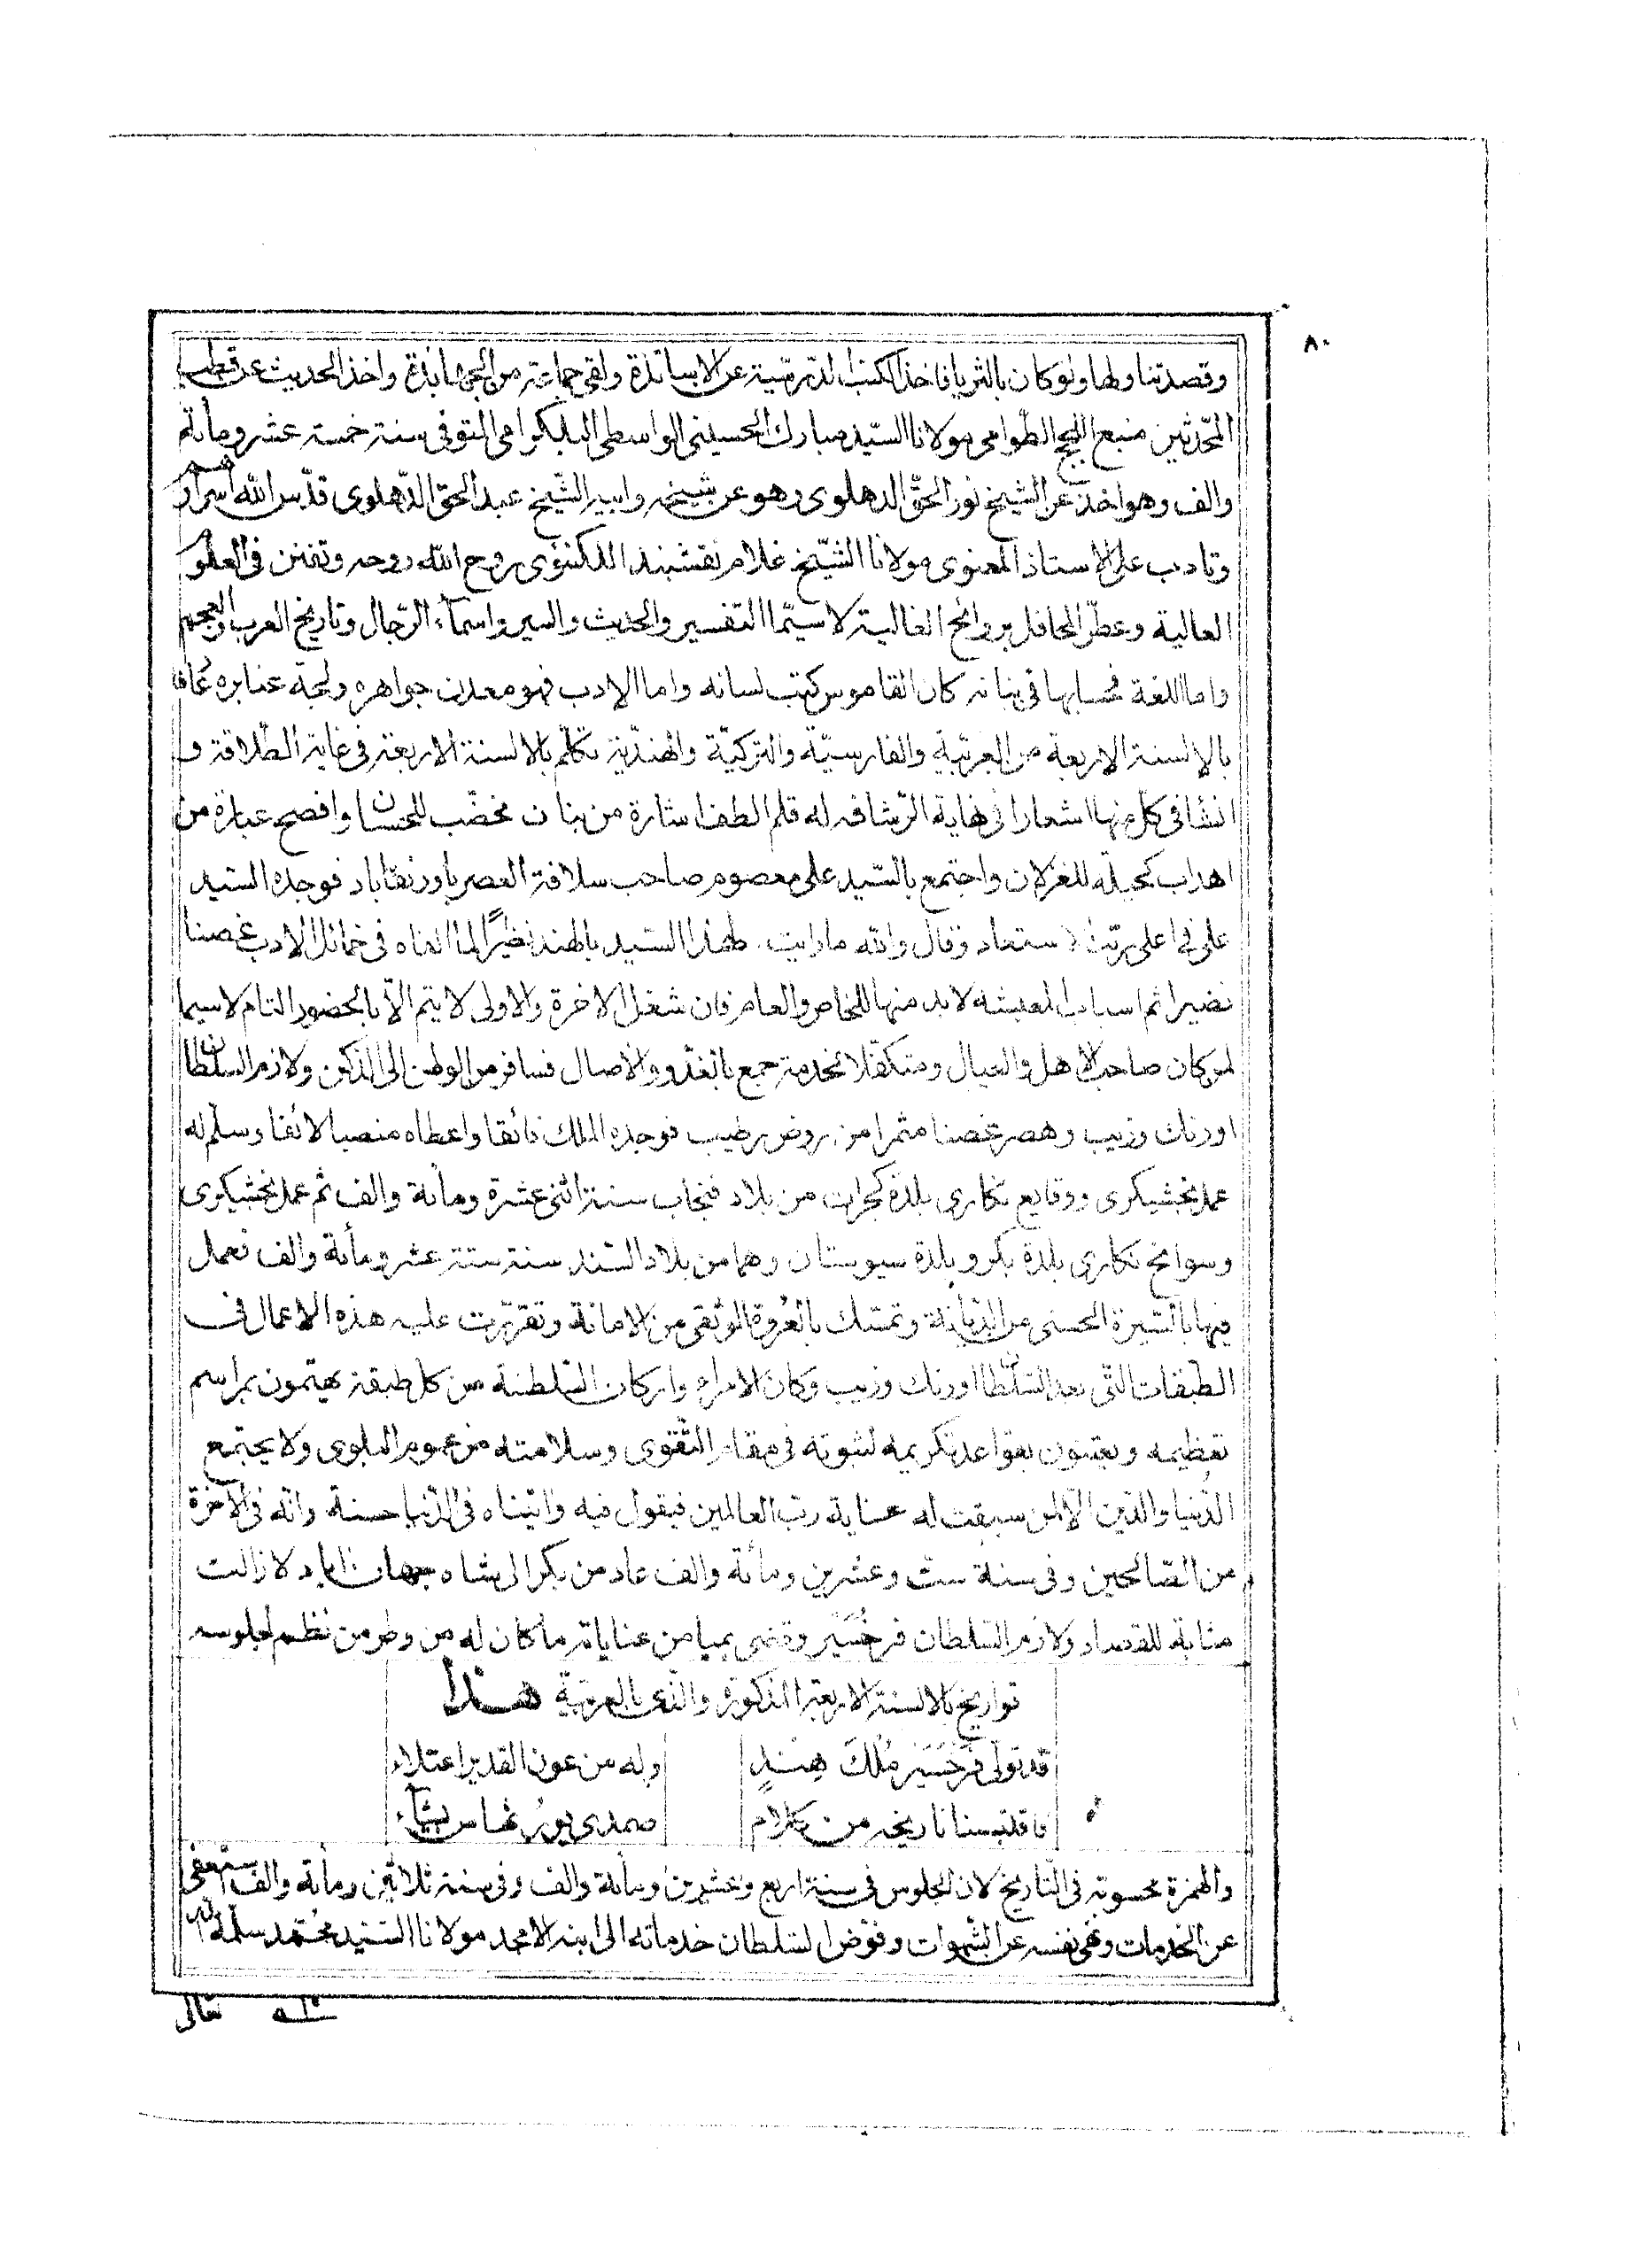 ٨٠
وقصد تناولها ولو كان بالثريا فاخذ الكتب الدرسية عن الاساتذة ولقى جماعة من الجهابذة واخذ الحديث عن قطب
المحدثين منبع اللجج الطوامى مولانا السيد مبارك الحسينى الواسطى البلكرامى المتوفى سنة خمسة عشر ومأئة
والف وهو اخذ عن الشيخ نور الحق الدهلوى وهو عن شيخه وابيه الشيخ عبد الحق الدهلوى قدس الله اسرارهم
وتادب على الاستاذ المعنوى مولانا الشيخ غلام نقشبند اللكنوى روح الله روحه وتفنن فى العلوم
العالية وعطر المحافل بروائح الغالية لا سيما التفسير والحديث والسير واسماء الرجال وتاريخ العرب والعجم
واما اللغة فحسابها فى بنانه كان القاموس كتب لسانه واما الادب فهو معدن جواهره ولجة عنابره عارفا
بالالسنة الاربعة من العربية والفارسية والتركية والهندية تكلم بالالسنة الاربعة فى غاية الطلاقة و
انشأ فى كل منها اشعارا فى نهاية الرشاقه له قلم الطف اشارة من بنان مخضب للحسان وافصح عبارة من
اهداب كحيلة للغزلان واجتمع بالسيد على معصوم صاحب سلافة العصر باورنقاباد فوجده السيد
على فى اعلى رتبة الاستعداد وقال والله ما رايت لهذا السيد بالهند نظيرا لما الفاه فى خمائل الادب غصنا
نضيرا ثم اسباب المعيشه لا بد منها للخاص والعام فان شغل الاخرة والاولى لا يتم الا بالحضور التام لا سيما
لمن كان صاحب الاهل والعيال ومتكفلا بخدمة جمع بالغدو والآصال فسافر من الوطن الى الدكن ولازم السلطان
اورنك وزيب وهصر غصنا مثمرا من روض رطيب فوجده الملك فائقا واعطاه منصبا لائقا وسلم له
عمل بخشيكرى ووقايع نكارى بلدة كجرات من بلاد فنجاب سنة اثنى عشرة ومأئة والف ثم عمل بخشيكرى
وسوانح نكارى بلدة بكر وبلدة سيوستان وهما من بلاد السند سنة ستة عشر ومأئة والف فعمل
فيها بالسيرة الحسنى من الديانة وتمسك بالعروة الوثقى من الامانة وتقررت عليه هذه الاعمال فى
الطبقات التى بعد السلطان اورنك وزيب وكان الامراء واركان السلطنة من كل طبقة يهتمون بمراسم
تعظيمه ويعتنون بقواعد تكريمه لثبوته فى مقام التقوى وسلامته من عموم البلوى ولا يجتمع
الدنيا والدين الا لمن سبقت له عناية رب العالمين فيقول فيه واتيناه فى الدنيا حسنة وانه فى الآخرة
من الصالحين وفى سنة ست وعشرين ومأئة والف عاد من بكر الى شاه جهان اباد لا زالت
مثابة للقصاد ولازم السلطان فرخسير وقضى بميامن عناياته ما كان له من وطر من نظم لجلوسه
تواريخ بالالسنة الاربعة المذكورة والذى بالعربية هذا
قد تولى فرخسير ملك هند وله من عون القدير اعتلاء
فاقتبسنا تاريخه من كلام صمدى يورثها من يشاء
والهمزة محسوبة فى التاريخ لان الجلوس فى سنة اربع وعشرين ومأئة والف وفى سنة ثلاثين ومأئة والف استعفى
عن الخدمات ونهى نفسه عن الشهوات وفوض السلطان خدماته الى ابنه الامجد مولانا السيد محمد سلمه الله
تعالى